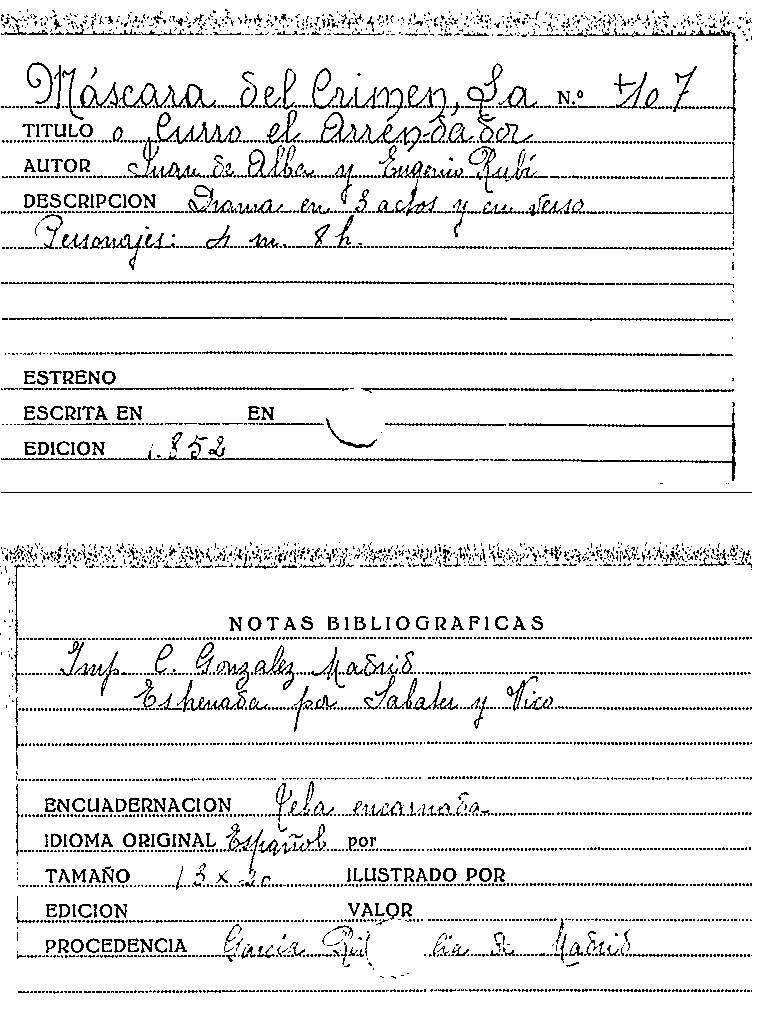 Máscara del Crimen, La N.º 4107
TITULO o Curro el Arrendador
AUTOR Juan de Alba y Eugenio Rubí
DESCRIPCION Drama en 3 actos y en verso
Personajes: 4 m. 8 h.
ESTRENO
ESCRITA EN EN
EDICION 1.852
NOTAS BIBLIOGRAFICAS
Imp. C. Gonzalez Madrid
Estrenada por Sabater y Vico
ENCUADERNACION Tela encarnada
IDIOMA ORIGINAL Español por
TAMAÑO 13 x 20 ILUSTRADO POR
EDICION VALOR
PROCEDENCIA García de Madrid